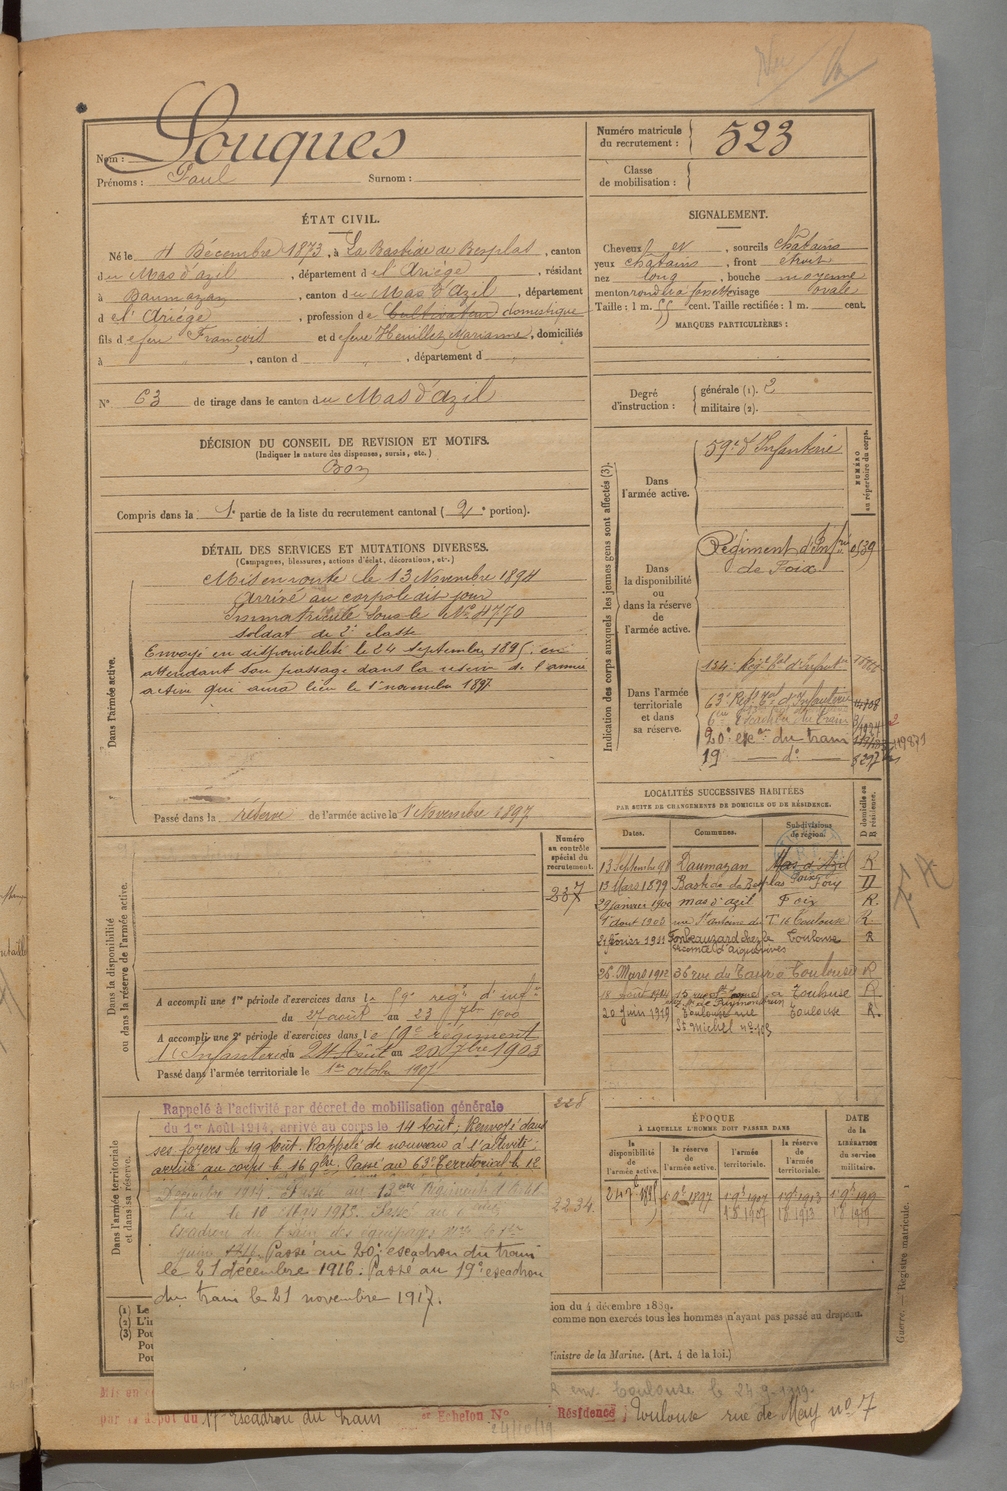 Nom : Louques
Prénoms : Paul Surnom :
Numéro matricule du recrutement : 523
Classe de mobilisation :
ÉTAT CIVIL.
Né le 4 Décembre 1873, à La Bastide de Besplas, canton
du Mas d'azil, département de l'Ariège, résidant
à Daumazan, canton du Mas d'Azil, département
de l'Ariège, profession de Cultivateur domestique
fils de feu François et de feue Marianne, domiciliés
à , canton d , département d
N° 63 de tirage dans le canton du Mas d'Azil
SIGNALEMENT.
Cheveux et , sourcils châtains
yeux châtains , front étroit
nez long , bouche moyenne
menton rond à fossette visage ovale
Taille : 1 m. 55 cent. Taille rectifiée : 1 m. cent.
MARQUES PARTICULIÈRES :
Degré d'instruction :
générale (1). 2
militaire (2).
DÉCISION DU CONSEIL DE REVISION ET MOTIFS.
(Indiquer la nature des dispenses, sursis, etc.)
Bon
Compris dans la 1e partie de la liste du recrutement cantonal ( 2e portion).
DÉTAIL DES SERVICES ET MUTATIONS DIVERSES.
(Campagnes, blessures, actions d'éclat, décorations, etc.)
Dans l'armée active.
Mis en route le 13 Novembre 1894
Arrivé au corps le dit jour
Immatriculé sous le N° 4770
soldat de 2e classe
Envoyé en disponibilité le 24 septembre 1895, en
attendant son passage dans la réserve de l'armée
active qui aura lieu le 1er novembre 1897
Passé dans la réserve de l'armée active le 1er Novembre 1897
Indication des corps auxquels les jeunes gens sont affectés (3).
NUMÉRO au répertoire du corps.
Dans l'armée active.
59e d'Infanterie
Dans la disponibilité ou dans la réserve de l'armée active.
Régiment d'Infrie
de Foix
Dans l'armée territoriale et dans sa réserve.
134e Régt tal d'Infie
63e Régt tal d'Infanterie
20e esc. du train
19 do
LOCALITÉS SUCCESSIVES HABITÉES
PAR SUITE DE CHANGEMENTS DE DOMICILE OU DE RÉSIDENCE.
Dates. Communes. Subdivisions de région. D domicile ou R résidence.
13 Septembre 98 Daumazan Mas d'Azil R
13 Mars 1899 Bastide de Besplas Foix D
29 janvier 1900 mas d'azil Foix R.
1er aout 1906 rue St Antoine du T. 16 Toulouse R.
21 Février 1911 Fonbeauzard chez le Toulouse R
vicomte d'aiguesvives
26 Mars 1912 36 rue du Taur à Toulouse R
à Toulouse R
20 juin 1919 Toulouse rue Toulouse R.
St Michel n° 103
Dans la disponibilité ou dans la réserve de l'armée active.
Numéro au contrôle spécial du recrutement.
287
A accompli une 1re période d'exercices dans le 59e régt d'infie
du 27 août au 23 7bre 1900
A accompli une 2e période d'exercices dans le 59e régiment
d'Infanterie du 24 Août au 20 7bre 1903
Passé dans l'armée territoriale le 1er octobre 1907
Dans l'armée territoriale et dans sa réserve.
Rappelé à l'activité par décret de mobilisation générale
du 1er Août 1914, arrivé au corps le 14 août; Renvoyé dans
ses foyers le 19 août. Rappelé de nouveau à l'activité;
arrivé au corps le 16 9bre, Passé au 63e Territorial le 12
Passé au 20e escadron du train
le 21 décembre 1916. Passé au 19e escadron
du train le 21 novembre 1917.
228
2234.
ÉPOQUE
À LAQUELLE L'HOMME DOIT PASSER DANS
la disponibilité de l'armée active. la réserve de l'armée active. l'armée territoriale. la réserve de l'armée territoriale.
DATE de la LIBÉRATION du service militaire.
24 7bre 1895 1 9bre 1897 1 9bre 1907 1 9bre 1913 1 9bre 1919
1 8 1907 1 8 1913 1 8 1919
(1) Le
(2) L'i
(3) Pou
Pou
Pou
ion du 4 décembre 1889.
comme non exercés tous les hommes n'ayant pas passé au drapeau.
Ministre de la Marine. (Art. 4 de la loi.)
Guerre. — Registre matricule. 1
Mis en
Toulouse le 24-9-1919.
par le dépôt du 17e Escadron du Train
Echelon N° Résidence Toulouse rue de May n° 7
24/10/19